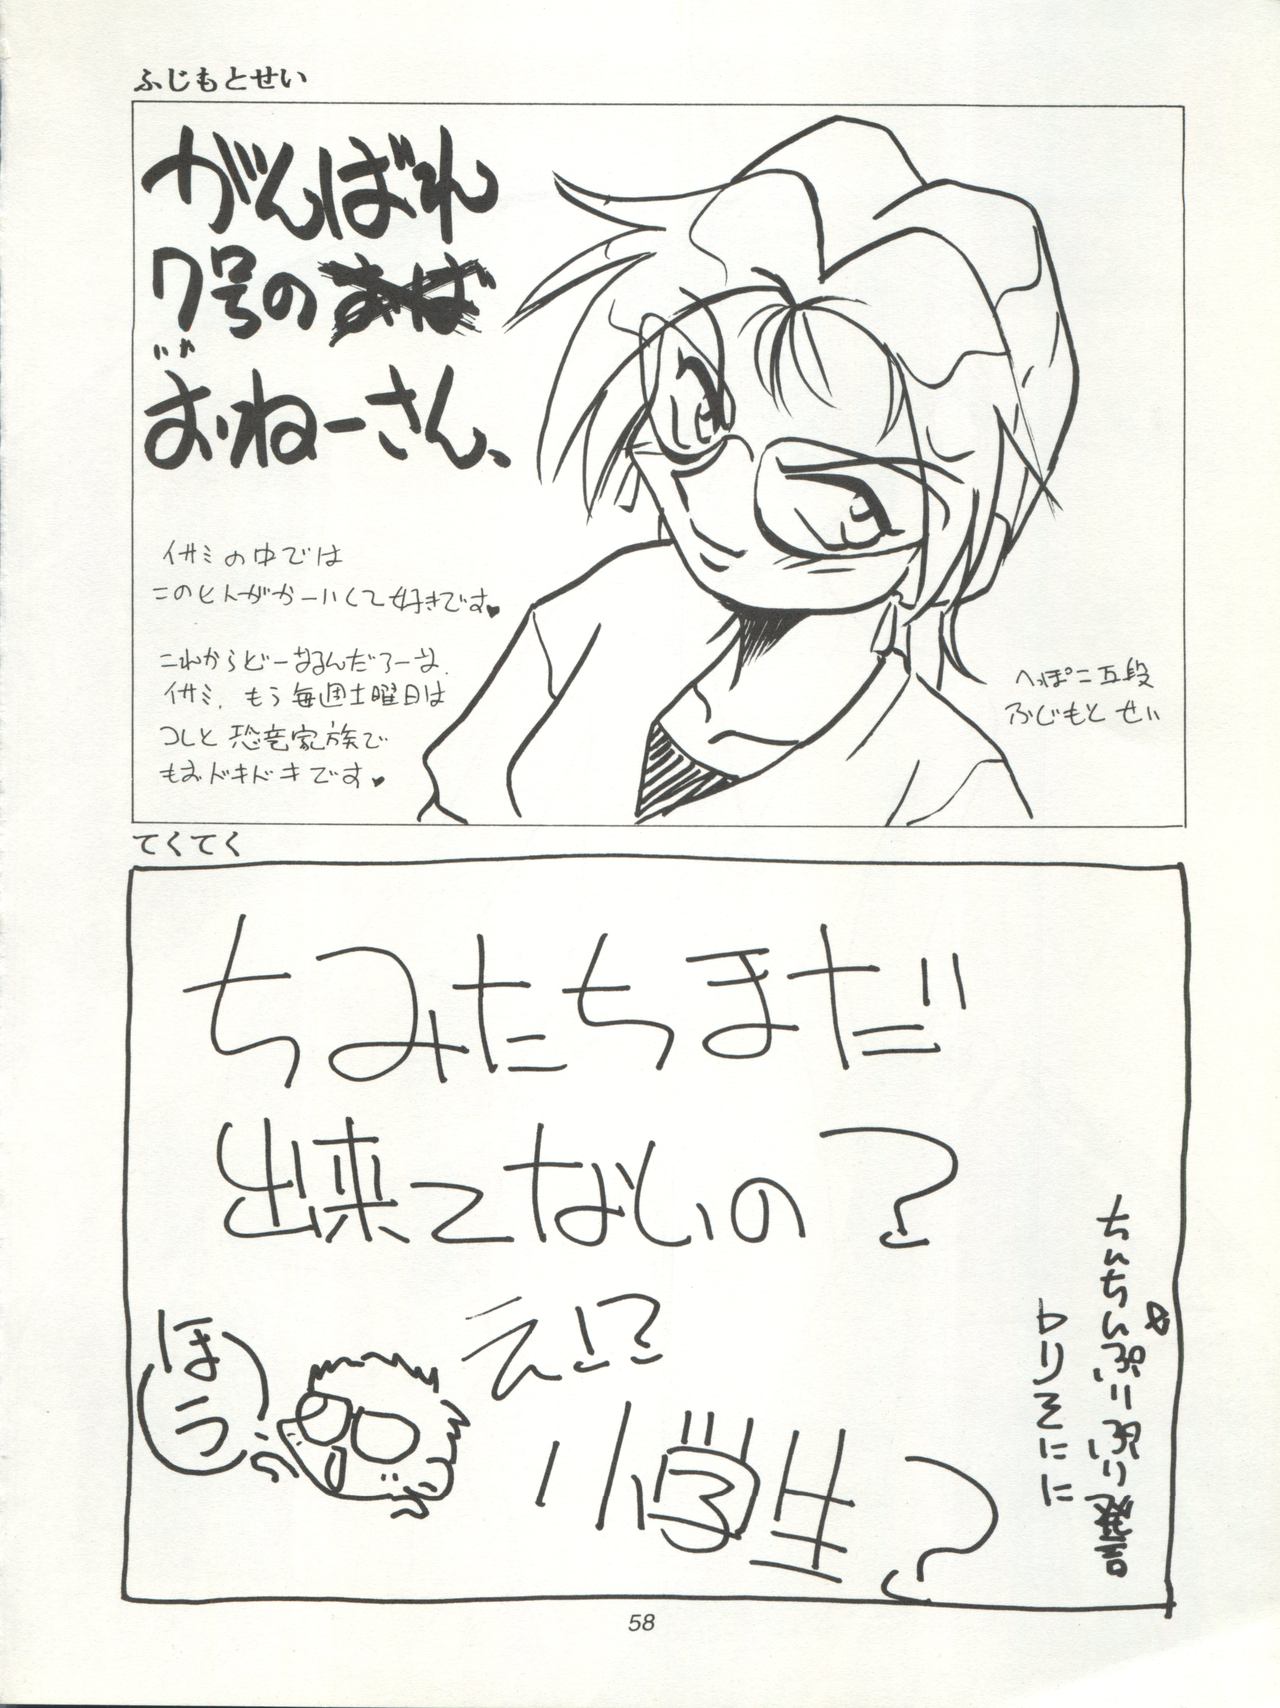 ふじもとせい
がんばれ
7号のおば
おねーさん、
イサミの中では
このヒトがかーいくて好きです♥
これからどーなるんだろーな。
イサミ、もう毎週土曜日は
コレと恐竜家族で
もおドキドキです♥
へっぽこ五段
ふじもと せい
てくてく
ちみたちまだ
出来てないの?
え!?
小学生?
ほう
ちぃちぃぷりぷり発言
トリオに
58